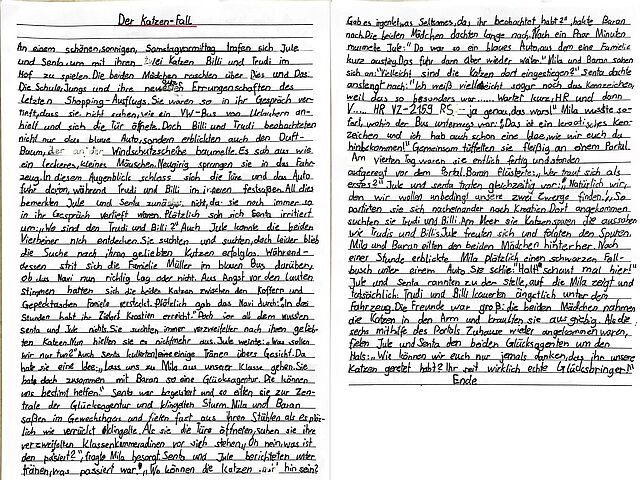 Der Katzen-Fall
An einem schönen, sonnigen, Samstagvormittag trafen sich Jule
und Senta um mit ihren zwei Katzen Billi und Trudi im
Hof zu spielen. Die beiden Mädchen raschten über Dies und Das.
Die Schule, Jungs und ihre Errungenschaften des
Letzten Shopping-Ausflugs. Sie waren so in ihr Gespräch ver-
tieft, dass sie nicht sahen, wie ein VW-Bus von Urlaubern an-
hielt und sich die Tür öffnete. Doch Billi und Trudi beobachteten
nicht nur das blaue Auto, sondern erblickten auch den Duft-
Baum, der an der Windschutzscheibe baumelte. Es sah aus wie
ein leckeres, kleines Mäuschen. Neugirig sprangen sie in das Fahr-
zeug. In diesem Augenblick schloss sich die Türe und das Auto
fuhr davon, während Trudi und Billi im inneren festsaßen. All dies
bemerkten Jule und Senta zunächst nicht, da sie noch immer so
in ihr Gespräch vertieft waren. Plötzlich sah sich Senta irritiert
um: „Wo sind den Trudi und Billi?" Auch Jule konnte die beiden
Vierbeiner nich entdecken. Sie suchten und suchten, doch leider blieb
die Suche nach ihren geliebten Katzen erfolglos. Während-
dessen strit sich die Familie Müller im blauen Bus darüber,
ob das Navi nun richtig lag oder nicht. Aus Angst vor den lauten
Stimmen hatten sich die beiden Katzen zwischen den Koffern und
Gepäcktaschen Familie versteckt. Plötzlich gab das Navi durch: „In
Stunden habt ihr Zielort Kroatien erreicht." Doch vor all dem wussten
Senta und Jule nichts. Sie suchten immer verzweifelter nach ihren gelieb-
ten Katzen. Nun hielten sie es nichtmehr aus. Jule weinte: „Was sollen
wir nur tun?" Auch Senta kullerten eine einige Tränen übers Gesicht. Da
hate sie eine Idee: „Lass uns zu Mila aus unserer Klasse gehen. Sie
hat doch zusammen mit Baran so eine Glücksagentur. Die können
uns bestimt helfen." Senta war begeistert und so eilten sie zur Zen-
trale der Glücksagentur und klingelten Sturm. Mila und Baran
saßen im Gewächshaus und fielen fast aus ihren Stühlen als es plötz-
lich wie verrückt klingelte. Als sie die Türe öffneten, sahen sie ihre
verzweifelten Klassenkammeradinen vor sich stehen. „Oh nein, was ist
den pasiert?", fragte Mila besorgt. Senta und Jule berichteten unter
tränen, was passiert war. „Wo können die Katzen nur hin sein?
Gab es irgentetwas Seltsames, das ihr beobachtet habt?", hakte Baran
nach. Die beiden Mädchen dachten lange nach. Nach ein Paar Minuten
murmelte Jule: „Da war so ein blaues Auto, aus dem eine Familie
kurz austieg. Das fuhr dann aber wieder weiter." Mila und Baran sahen
sich an: „Vielleicht sind die Katzen dort eingestiegen?" Senta dachte
anstengt nach: „Ich weiß vielleicht sogar noch das Kennzeichen,
weil das so besonders war...... Wartet kurz, HR und dann
V..... HR VZ-2169 RS - ja genau, das wars!" Mila wusste so-
fort, wohin der Bus unterwegs war: „Das ist ein kroatisches Kenn-
zeichen und ich hab auch schon eine Idee, wie wir euch da
hinbekommen!" Gemeinsam tüftelten sie fleißig an einem Portal.
Am vierten Tag waren sie entlich fertig und standen
aufgeregt vor dem Portal. Baran flüsterte: „Wer traut sich als
erstes?" Jule und Senta traten gleichzeitig vor: „Natürlich wir,
den wir wollen unbedingt unsere zwei Zwerge finden." So
portirten sie sich nacheinander nach Kroatien. Dort angekommen
suchten sie Trudi und Billi. Am Meer sie Katzenspuren die aussahen
wie Trudis und Billis. Jule freuten sich und folgten den Spuren.
Mila und Baran eilten den beiden Mädchen hinterher. Nach
einer Stunde erblickte Mila plötzlich einen schwarzen Fell-
busch unter einem Auto. Sie schrie: „Halt! schaut mal hier!"
Jule und Senta rannten zu der Stelle, auf die Mila zeigt und
tatsächlich: Trudi und Billi kauerten ängstlich unter dem
Fahrzeug. Die Freude war groß; die beiden Mädchen nahmen
die Katzen in den Arm und knuddelten sie ausgiebig. Als die
sechs mithilfe des Portals Zuhause wieder angekommen waren,
fielen Jule und Senta den beiden Glücksagenten um den
Hals: „Wie können wir euch nur jemals danken, das ihr unsere
Katzen geretet habt? Ihr seit wirklich echte Glücksbringer!!"
Ende